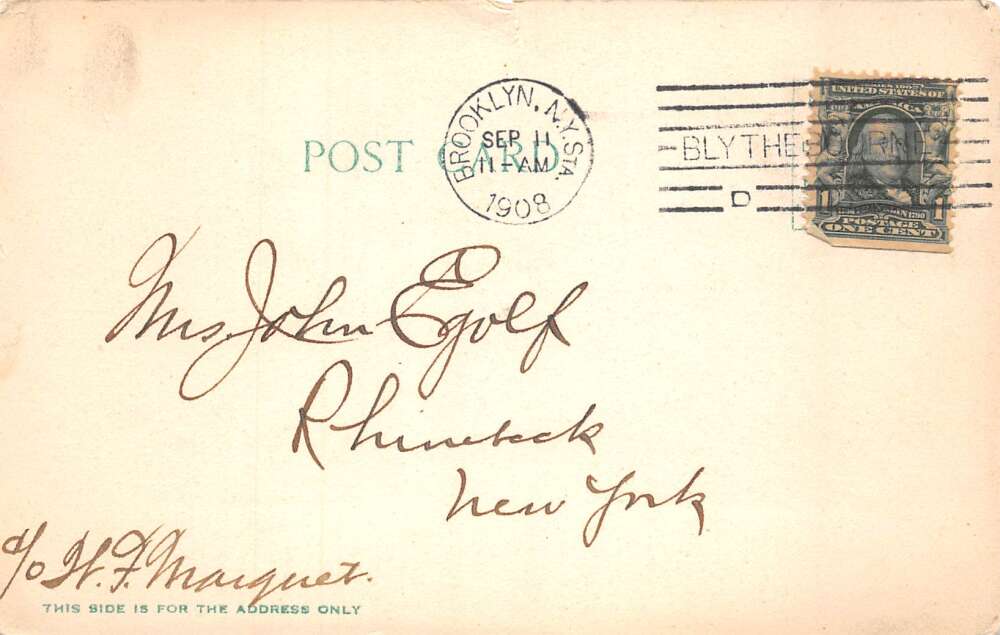 POST CARD
BROOKLYN, N.Y. STA.
SEP 11
11-AM
1908
BLYTHEBOURNE
D
SERIES 1902
UNITED STATES OF
AMERICA
1 1
FRANKLIN 1790
POSTAGE
ONE CENT
Mrs. John Egolf
Rhinebeck
New York
c/o W. F. Marquet.
THIS SIDE IS FOR THE ADDRESS ONLY